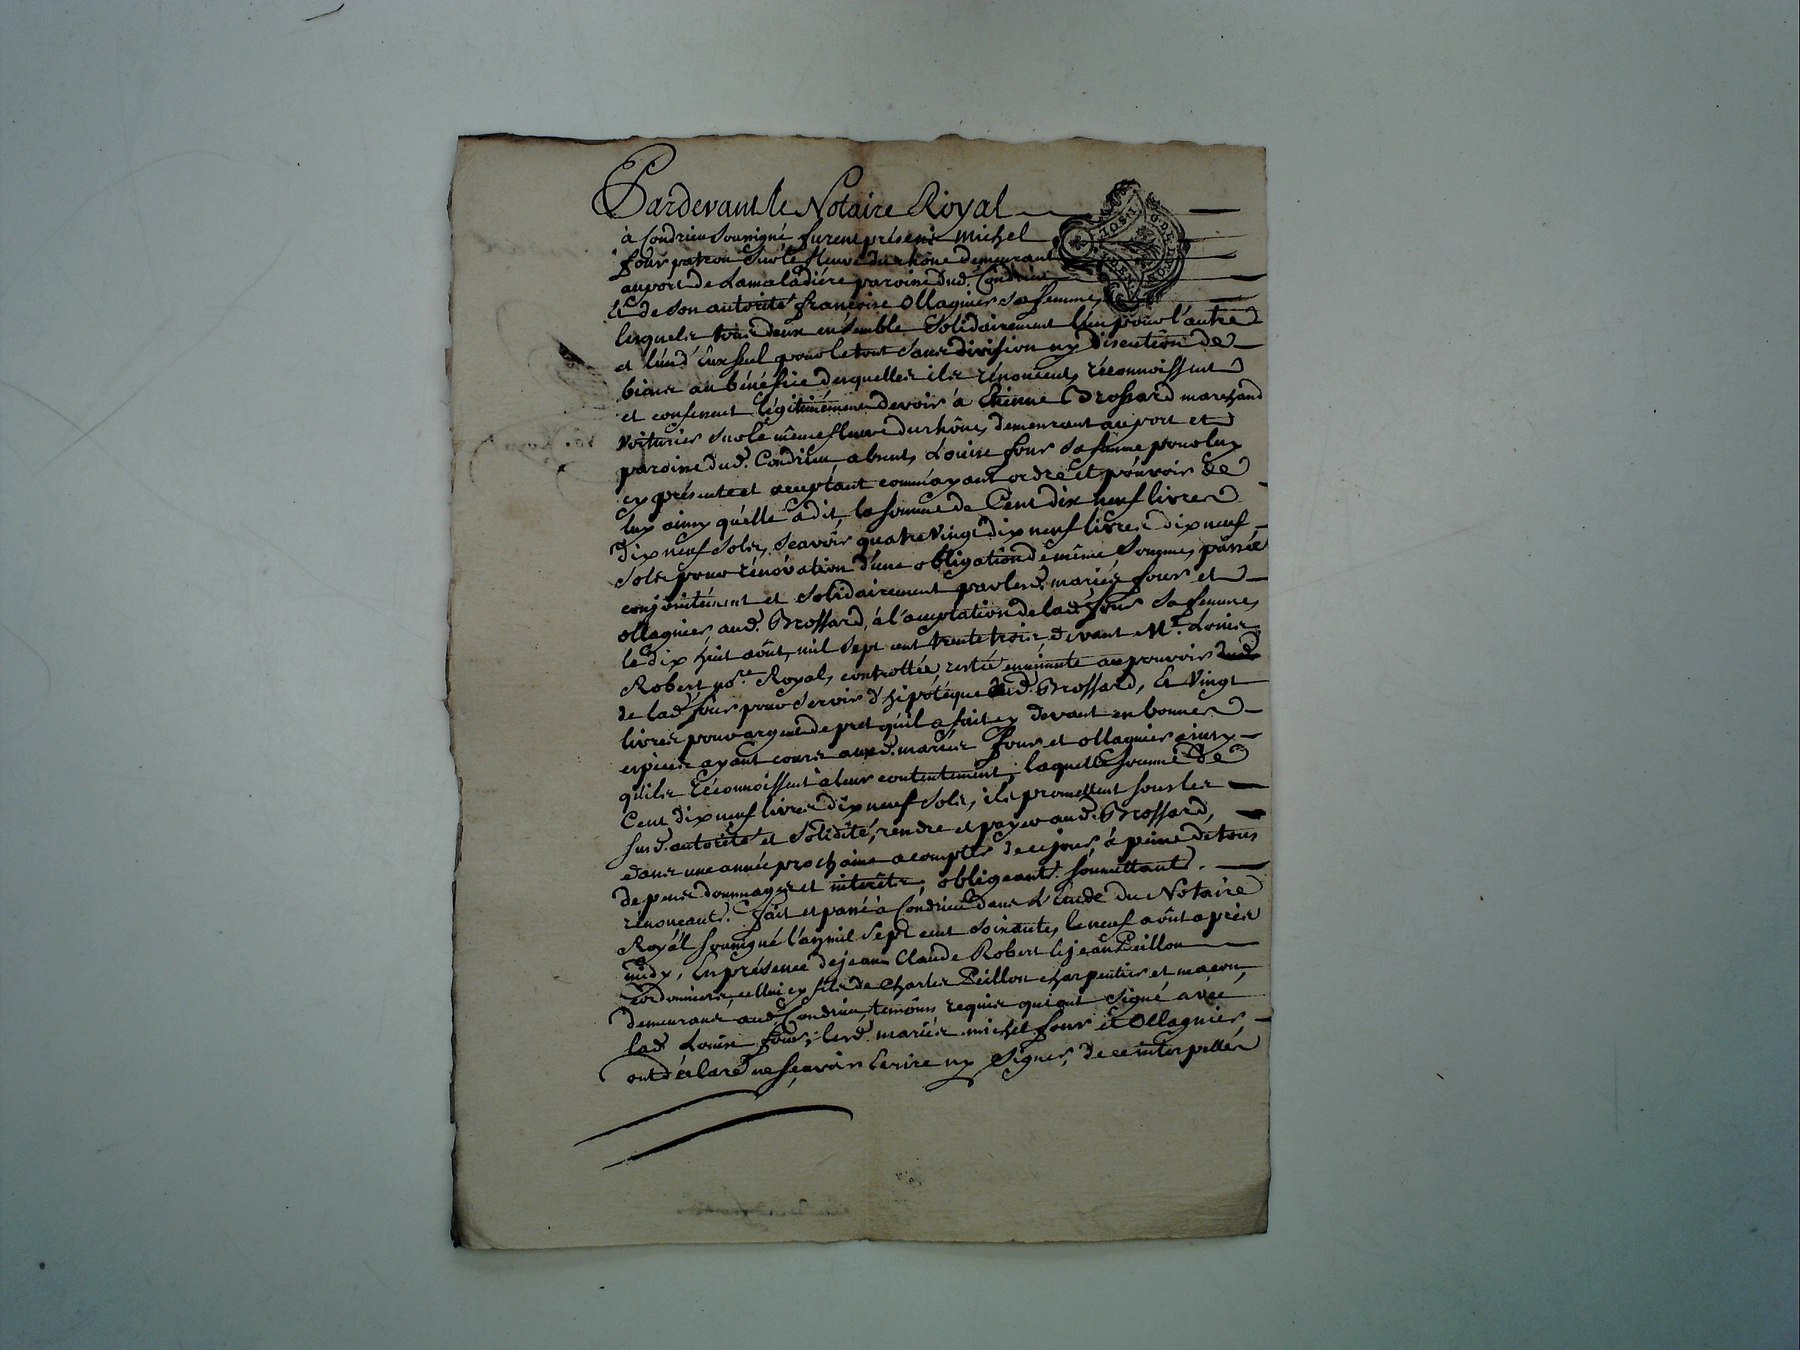 Pardevant le Notaire Royal
à Condrieu soussigné furent présens Michel
four patron sur le fleuve du rhône demeurant
au port de Lamaladiére paroisse dud. Condrieu
Et de son autorité françoise Ollagnier sa femme,
lesquels tous deux ensemble Solidairement l'un pour l'autre
et l'un d'Eux seul pour le tout sans division ny discution de
biens au bénéfice desquelles ils rénoncent, réconnoissent
et confessent légitimément devoir à Etienne Brossard marchand
voiturier sur le même fleuve du rhône, demeurant au port et
paroisse dud. Condrieu absent, Louise four sa femme pour luy
cy présente et acceptant comm'ayant ordre et pouvoir de
luy ainsy qu'elle a dit, la somme de Cent dix neuf livres
dix neuf sols, Scavoir quatre vingt dix neuf livres dix neuf
sols pour rénovation d'une obligation de même somme, passée
conjointement et solidairement par lesd. mariés four et
ollagnier, aud. Brossard, à l'acceptation de lad. four sa femme,
le dix huit août, mil sept cent trente trois, devant Me. Louis
Robert nore. Royal, controllée, restée en minute au pouvoir
de lad. four pour servir d'hipotéque aud. Brossard, Et vingt
livres pour argent de pret qu'il a fait cy devant en bonnes
espéces ayant cours auxd. mariés four et ollagnier ainsy
qu'ils réconnoissent à leur contentement; laquelle somme de
Cent dix neuf livres dix neuf sols, ils promettent sous les
susd. autorité et solidité, rendre et payer aud. Brossard,
dans une année prochaine a compter de ce jour, à peine de tous
depens dommages et intérêts, obligeant. soumettant.
rénonçant. fait et passé à Condrieu dans L'Etude du Notaire
Royal soussigné l'an mil sept cent soixante, le neuf août après
midy, En présence de jean Claude Robert & jean Peillon
cordonniers, celluicy fils de Charles Peillon charpentier et maçon,
demeurans aud. Condrieu, témoins requis qui ont signé avec
lad. Louise four, lesd. mariés michel four et Ollagnier,
ont déclaré ne sçavoir Ecrire ny signer, de ce interpellés